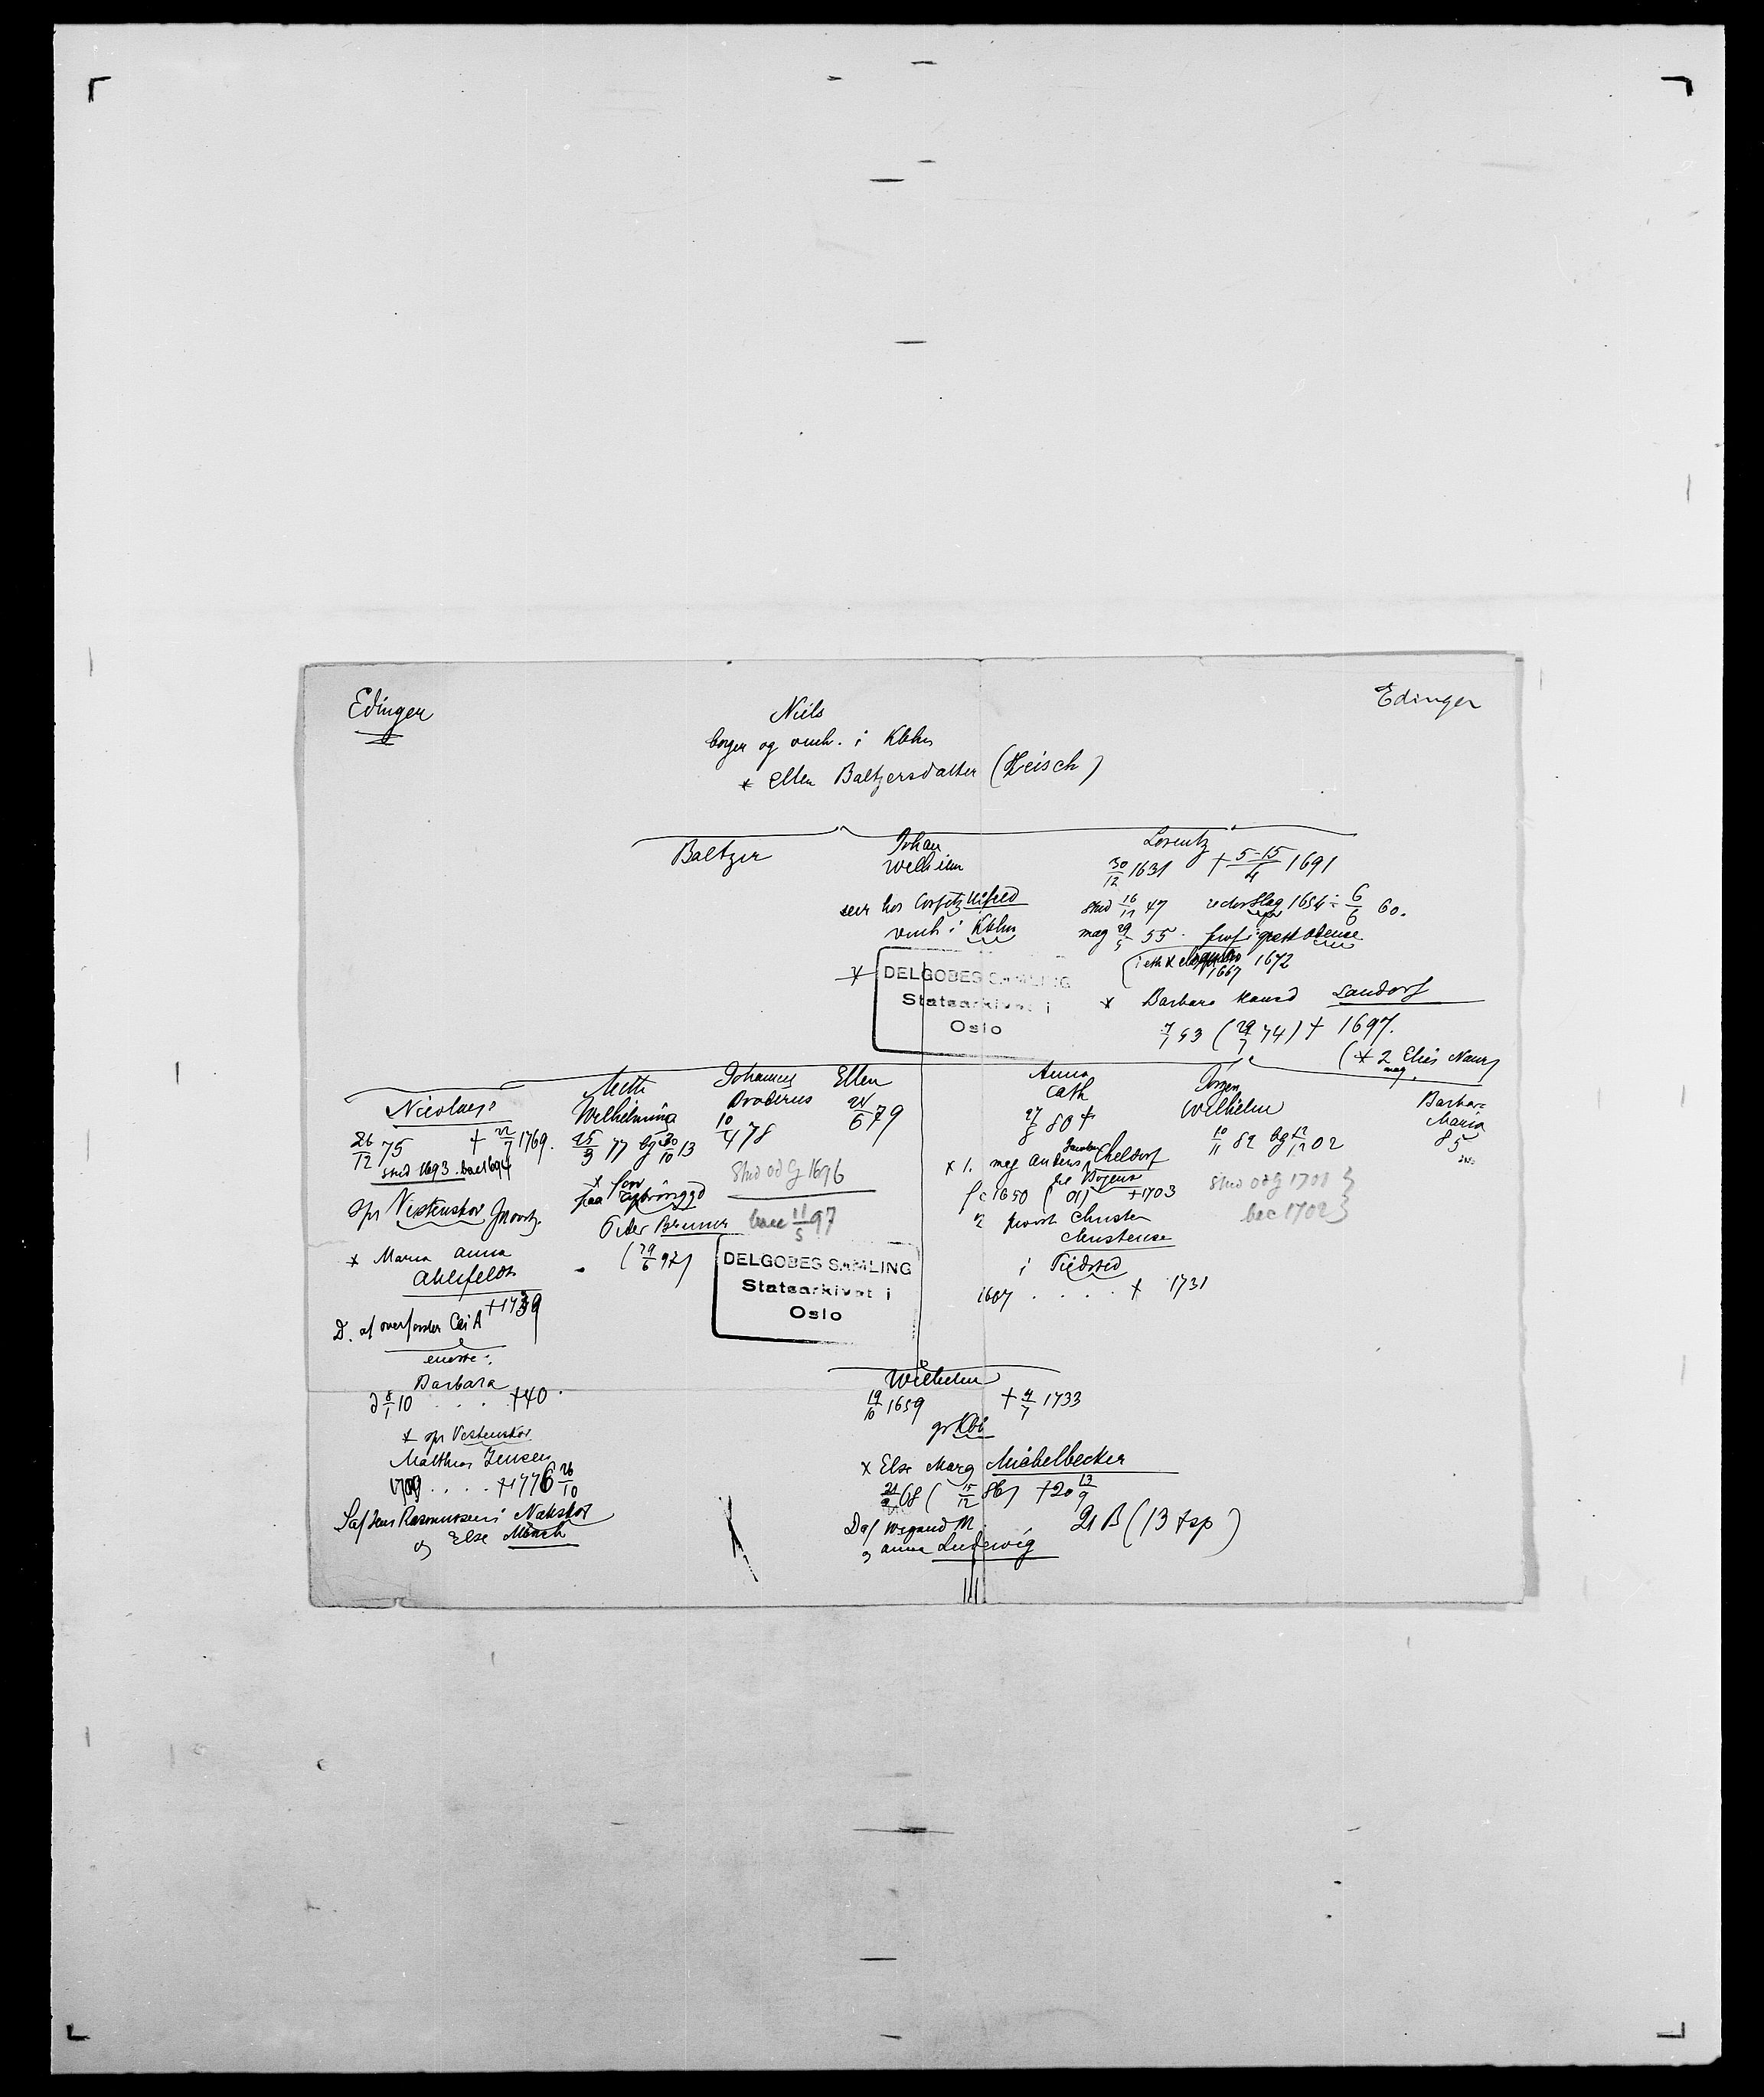 Edinger
Edinger
Niels
borger og vinh. i Kbhn
* Ellen Baltzersdatter (Zeisch)
Baltzer
Johan
Wilhelm
secr hos Corfitz Ulfeld
vinh i Kbhn
*
Lorentz
30/12 1631 † 5-15/4 1691
stud 16/11 47 rector Slag 1654 ÷ 6/6 60.
mag 29/5 55. prof i gr Odense
1667 1672
* Barbara Sandorf
53 (29/7 74) † 1697.
(* 2 mag. Elias Naur)
DELGOBES SAMLING
Statsarkivet i
Oslo
Nicolaus
26/12 75 † 22/7 1769.
stud 1693. bac 1694
spr Vestenskov
* Maria Anna
Ahlefeldt
† 1739
D. af overførster Cai A
eneste:
Barbara
8/1 10 . . . †40.
* spr Vestenskov
Matthias Jensen
1709 . . . . †1776 26/10
S af Jens Rasmussen i Nakskov
og Else Münch
Mette
Wilhelmina
25/3 77 bg 30/10 13
* forv
paa
Peder Brunner
(29/6 97)
Johannes
Broderus
10/4 78
Stud od G 1696
bacc 11/5 97
Ellen
24/6 79
DELGOBES SAMLING
Statsarkivet i
Oslo
Anna
Cath
27/8 80 †
* 1. mag Anders Jacobsen Cheldorf
f c 1650 (01) †1703
2 provst Christen
Christensen
i Tiedsted
1667 . . . . † 1731
Jörgen
Wilhelm
10/11 82 bg 12/12 02
Stud od G 1701
bac 1702
Barbara
Maria
85
Wilhelm
19/10 1659 † 4/7 1733
gr Kbh
* Else Marg Michelbecker
68 (15/12 86) †20 13/9
D af Wigand M.
og Anna Ludewig
21 B (13 † sp)